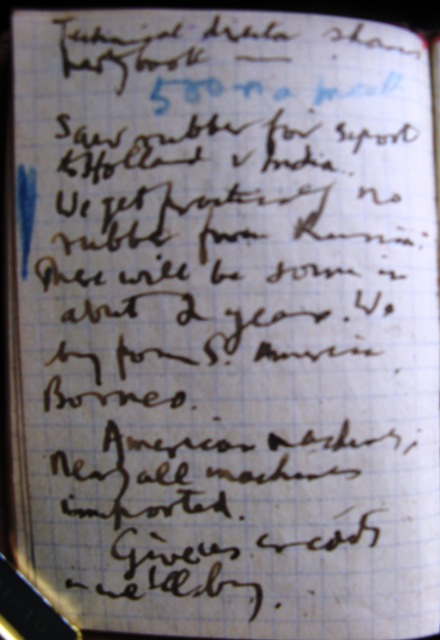 Technical director shows
party book —
500 r. a month
Saw rubber for export
to Holland & India.
We get practically no
rubber from Russia.
There will be some in
about 2 years. We
buy from S. America
Borneo.
American machines;
nearly all machines
imported.
Give us credits
& we'll buy.